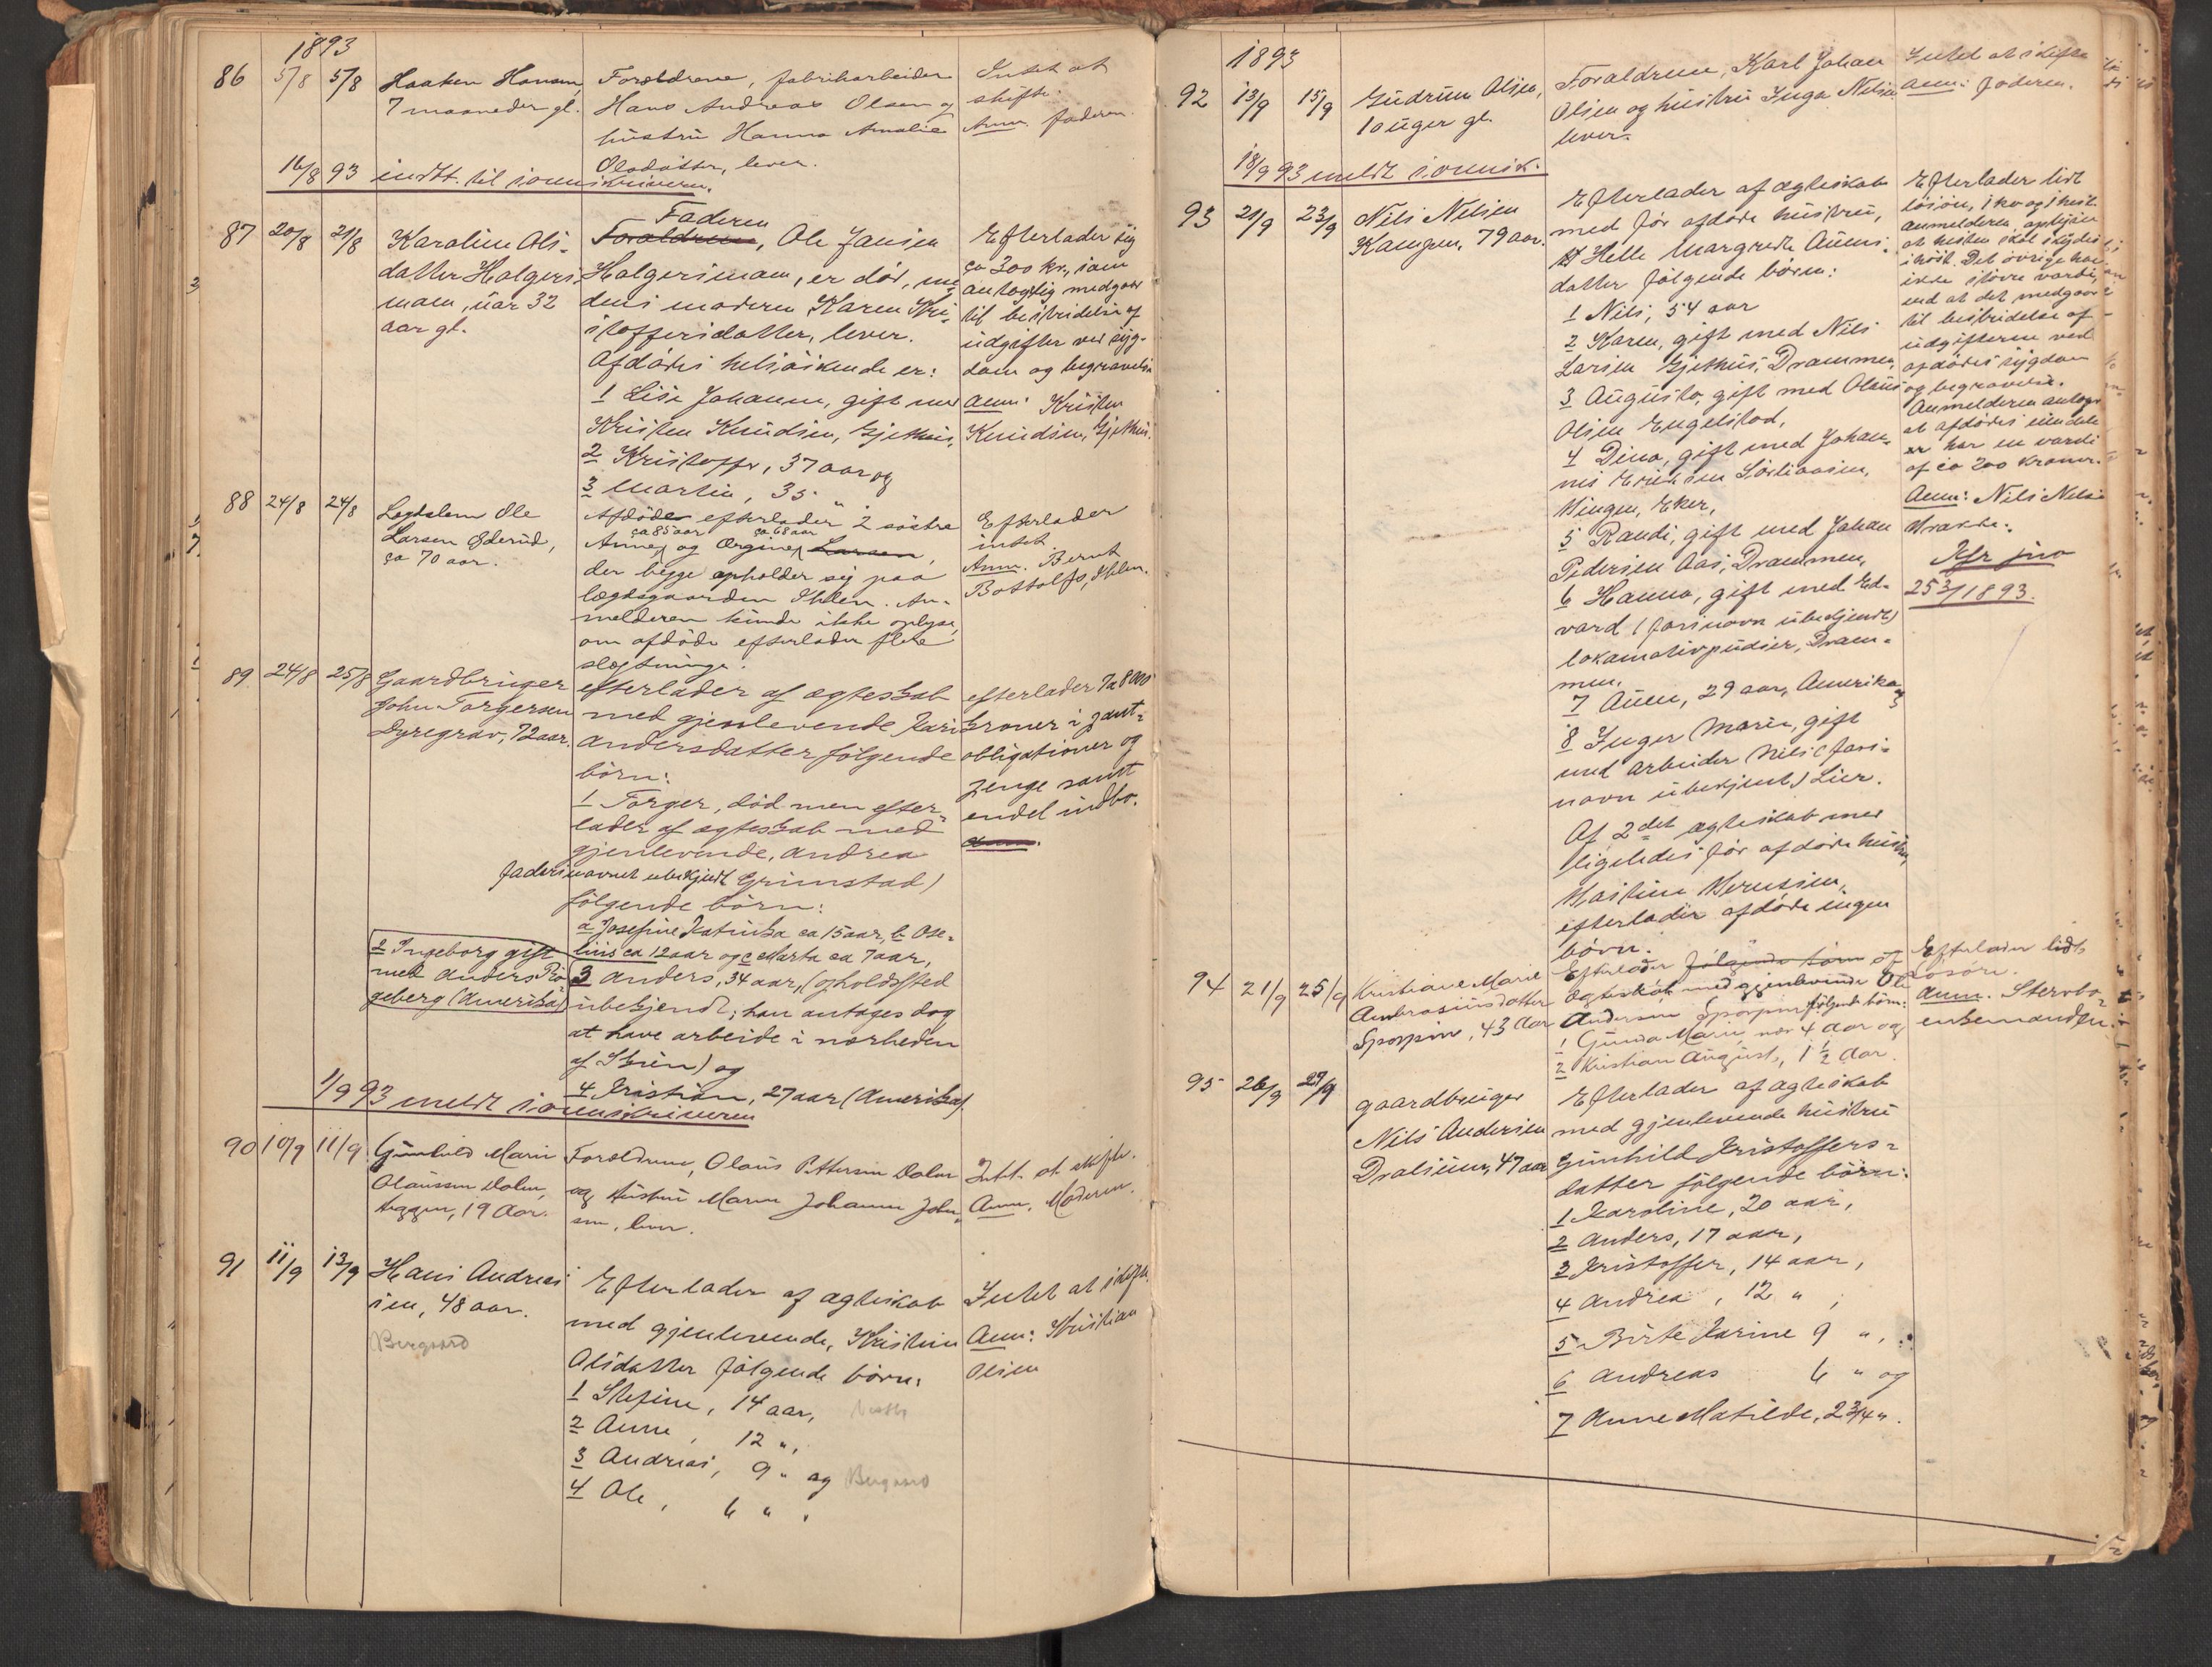 1893
86 5/8 5/8 Haaken Hansen,
7 maaneder gl.
Forældrene, fabrikarbeider
Hans Andreas Olsen og
hustru Hanna Amalie
Olsdatter, lever.
Intet at
skifte.
Anm. faderen.
16/8 93 indt. til sorenskriveren.
87 20/8 21/8 Karoline Ols-
datter Holgers-
moen, úar 32
aar gl.
Faderen
Forældrene, Ole Jansen
Holgersmoen, er død, me-
dens moderen Karen Kri-
stoffersdatter, lever.
Afdødes helsøskende er:
1 Lise Johanne, gift med
Kristen Knudsen, Gjethus,
2 Kristoffer, 37 aar og
3 Martin, 35 "
Efterlader sig
ca 300 kr, som
antagelig medgaar
til bestridelse af
udgifter ved syg-
dom og begravelse
Anm: Kristen
Knudsen, Gjethus.
88 24/8 24/8 Lægdslem Ole
Larsen Øderud,
ca 70 aar.
Afdøde efterlader 2 søstre
ca 85 aar ca 68 aar
Anne og Ørgine Larsen,
der begge opholder sig paa
lægdsgaarden Ihlen. An-
melderen kunde ikke oplyse,
om afdøde efterlader flere
slægtninge.
Efterlader
intet.
Anm. Bernt
Bottolfs, Ihlen.
89 24/8 25/8 Gaardbruger
John Torgersen
Dyregrav, 72 aar.
efterlader af ægteskab
med gjenlevende Kari
Andersdatter følgende
børn:
1 Torger, død men efter-
lader af ægteskab med
gjenlevende, Andrea
fadersnavnet ubekjendt Grimstad)
følgende børn:
a Josefine Katinka ca 15 aar, b Ose-
lius ca 12 aar og c Marta ca 7 aar,
2 Ingeborg gift
med Anders
(Amerika)
3 Anders, 34 aar, (opholdssted
ubekjendt; han antages dog
at have arbeide i nærheden
af Skien) og
4 Kristian, 27 aar (Amerika).
efterlader 7 a 8000
kroner i pant-
obligationer og
penge samt
endel indbo.
Anm.
1/9 93 meldt sorenskriveren
90 10/9 11/9 Gunhild Marie
Olaussen Dolm,
19 Aar.
Forældrene, Olaus Pettersen Dolm
og hustru Maren Johanne John-
sen, lever.
Intet at skifte.
Anm. Moderen.
91 11/9 13/9 Hans Andreas-
sen, 48 aar.
Bergaard
Efterlader af ægteskab
med gjenlevende, Kristine
Olsdatter følgende børn:
1 Stefine, 14 aar,
2 Anne, 12 ",
3 Andreas, 9 " og
4 Ole, 6 " .
Intet at skifte.
Anm: Kristian
Olsen
1893
92 13/9 15/9 Gudrun Olsen,
10 uger gl.
Forældrene, Karl Johan
Olsen og hustru Inga Nilsen
lever.
Intet at skifte
Anm: faderen.
18/9 93 meldt sorensk.
93 21/9 23/9 Nils Nilsen
Kampen, 79 aar.
Efterlader af ægteskab
med før afdøde hustru,
Helle Margrete Auens-
datter følgende børn:
1 Nils, 54 aar
2 Karen, gift med Nils
Larsen Gjethus, Drammen,
3 Augusta, gift med Olaus
Olsen Engelstad,
4 Dina, gift med Johan-
nes Eriksen
Vingen, Eker,
5 Randi, gift med Johan
Pedersen Aas, Drammen,
6 Hanna, gift med Ed-
vard (farsnavn ubekjendt)
lokomotivpudser, Dram-
men,
7 Auen, 29 aar, Amerika og
8 Inger Marie, gift
med arbeider Nils (fars-
navn ubekjent) Lier.
Af 2det ægteskab med
ligeledes før afdøde hustru,
efterlader afdøde ingen
børn.
Efterlader lidt
løsøre, 1 ko og 1 hest.
Anmelderen oplyser
at hesten skal skydes
i høst. Det øvrige har
ikke større værdi,
end at det medgaar
til bestridelse af
udgifterne ved
afdødes sygdom
og begravelse.
Anmelderen antager
at afdødes eiendele
har en værdi
af ca 200 kroner.
Anm: Nils Nilsen
Kfr jno
253/1893.
94 21/9 25/9 Kristiane Marie
Ambrosiusdatter
43 Aar
Efterlader følgende børn af
ægteskab med gjenlevende Ole
Andersen følgende børn:
1 Gunda Marie, nær 4 Aar og
2 Kristian August, 1 1/2 Aar.
Efterlader lidt
løsøre.
Anm. Stervbo-
enkemanden.
95 26/9 27/9 gaardbruger
Nils Andersen
Dralium, 47 aar
Efterlader af ægteskab
med gjenlevende hustru
Gunhild Kristoffers-
datter følgende børn:
1 Karoline, 20 aar,
2 Anders, 17 aar,
3 Kristoffer, 14 aar,
4 Andrea, 12 " ,
5 Birte Karine 9 ",
6 Andreas 6 " og
7 Anne Matilde, 2 3/4 ".